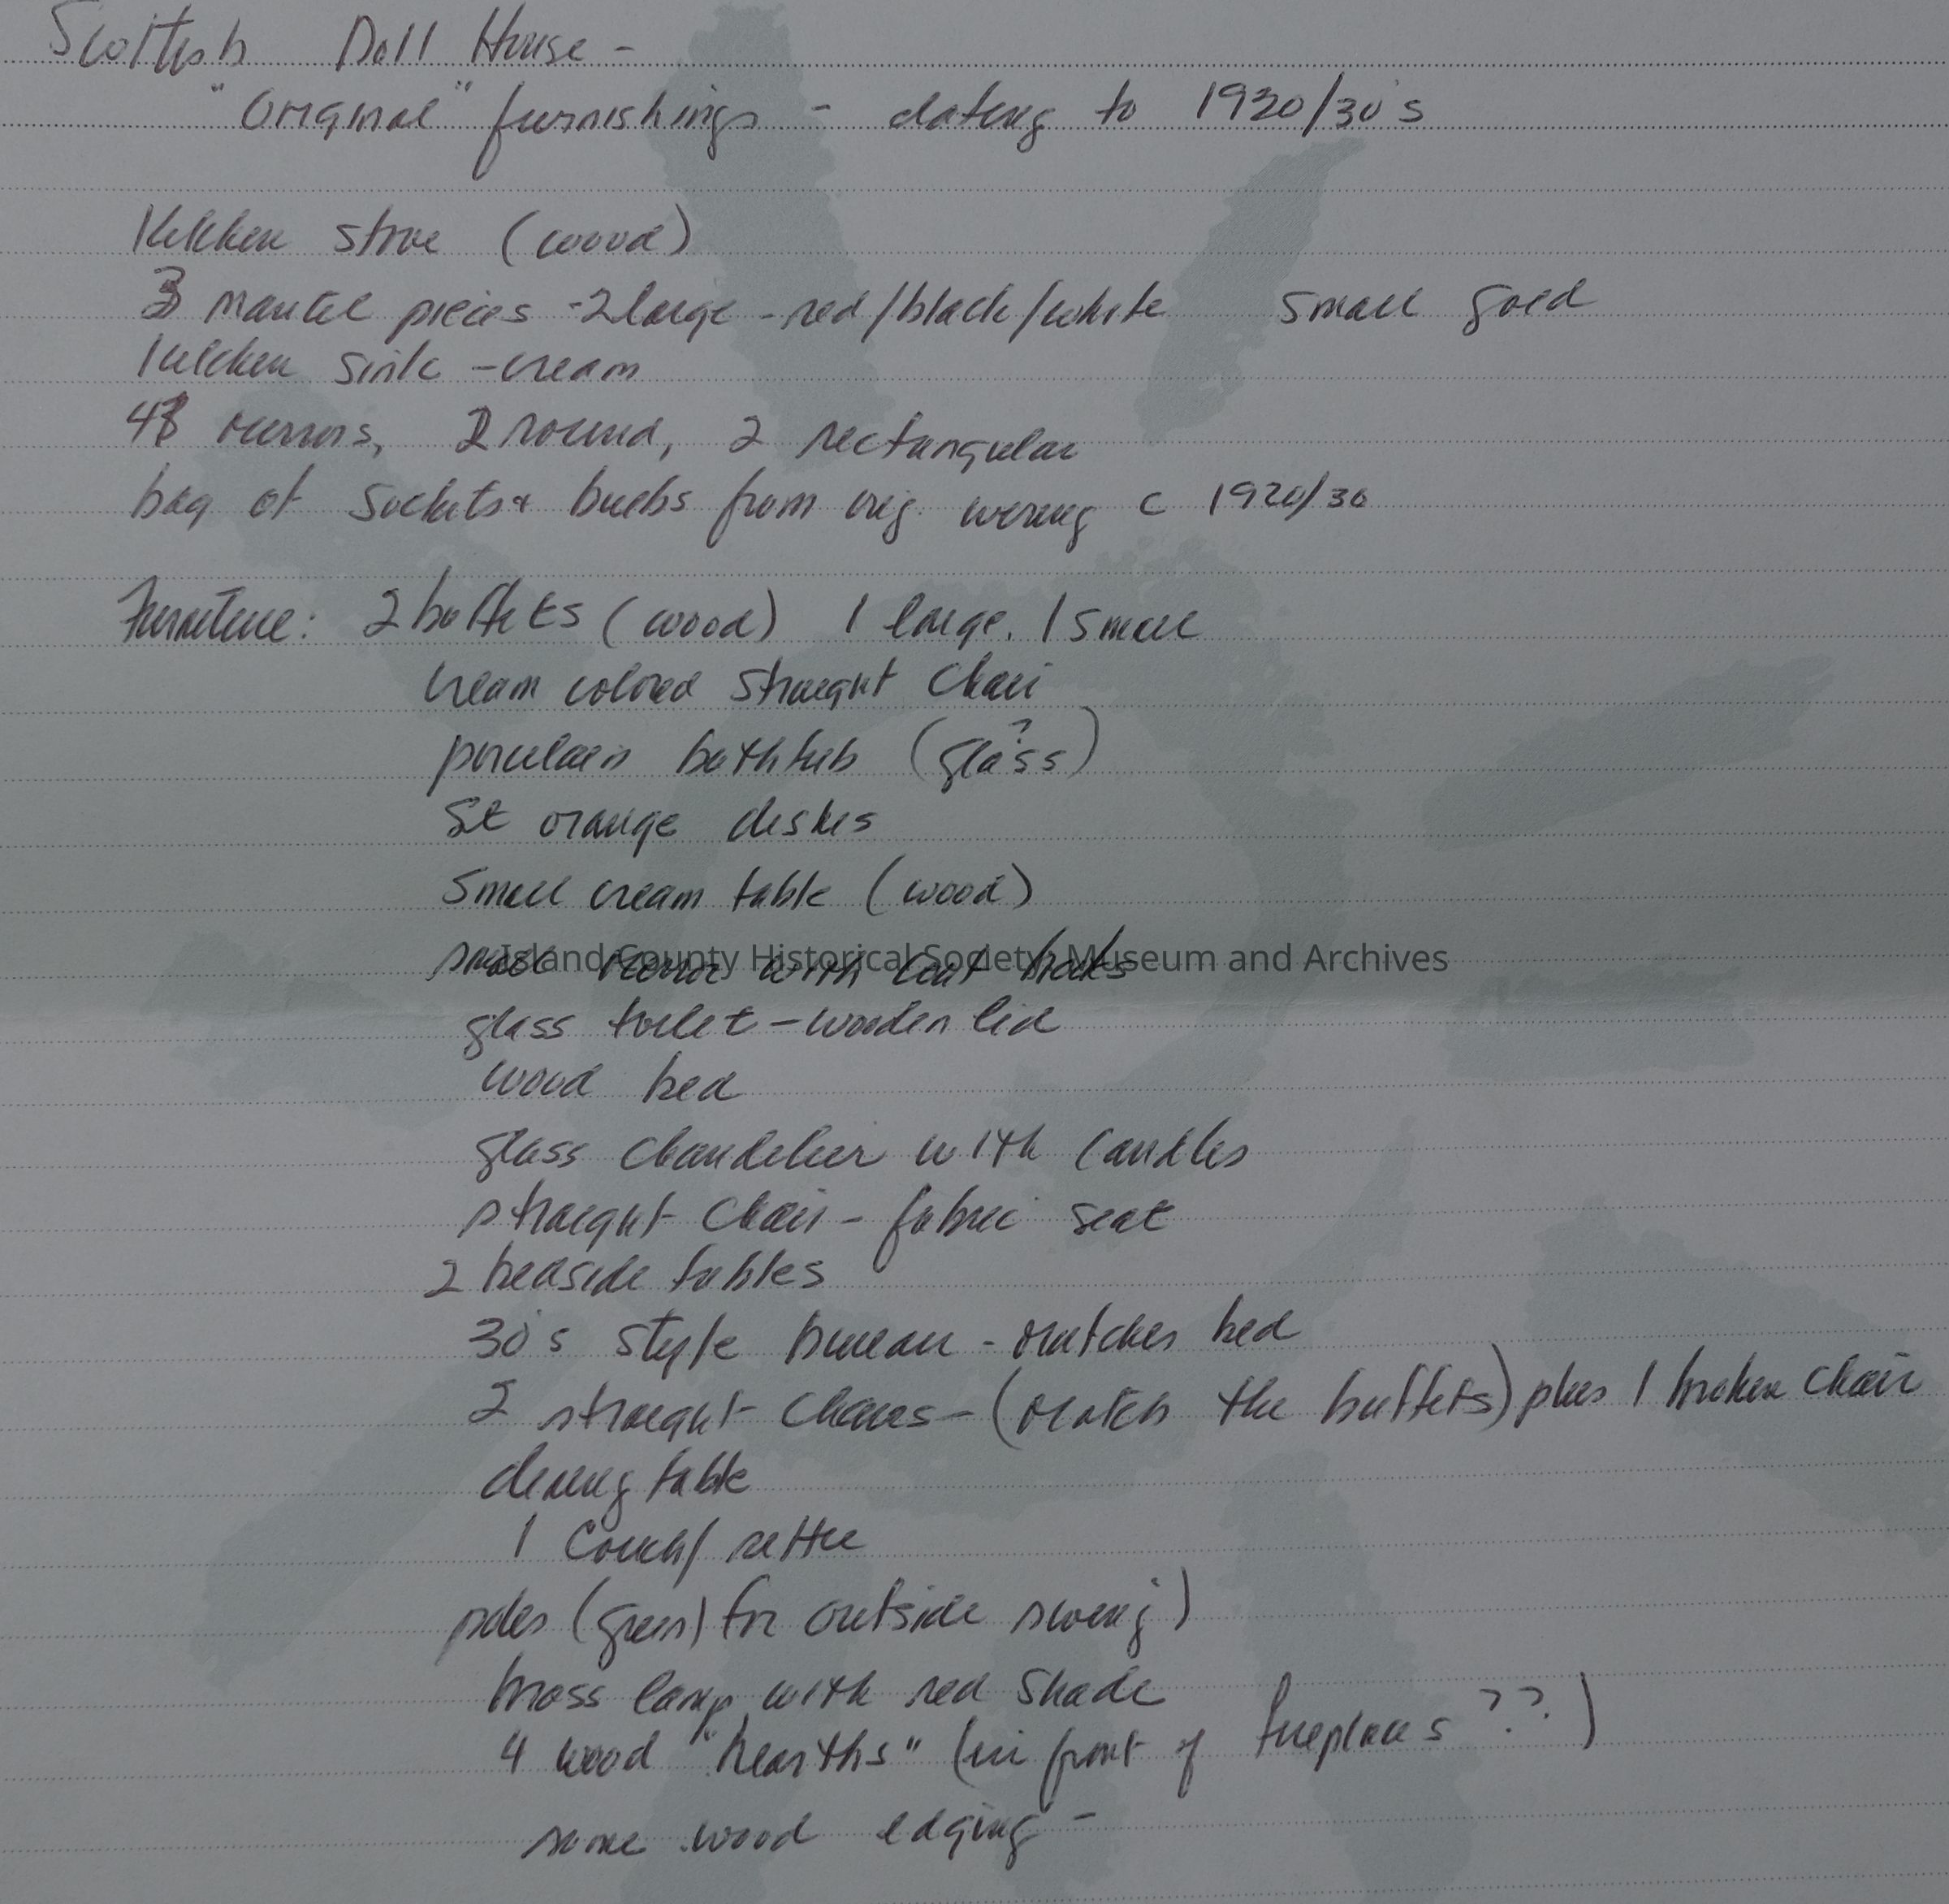 Scottish Doll House -
"Original" furnishings - dating to 1920/30's
Kitchen stove (wood)
3 mantel pieces - 2 large - red/black/white small gold
Kitchen sink - cream
4 mirrors, 2 round, 2 rectangular
bag of sockets + bulbs from orig. wiring c 1920/30
Furniture: 2 buffets (wood) 1 large. 1 small
cream colored straight chair
porcelain bathtub (glass?)
set orange dishes
small cream table (wood)
small mirror with coat hooks
Island County Historical Society, Museum and Archives
glass toilet - wooden lid
wood bed
glass chandelier with candles
straight chair - fabric seat
2 bedside tables
30's style bureau - matches bed
2 straight chairs - (match the buffets) plus 1 broken chair
dining table
1 couch/settee
poles (green) for outside swing)
brass lamp with red shade
4 wood "hearths" (in front of fireplaces ??)
some wood edging -